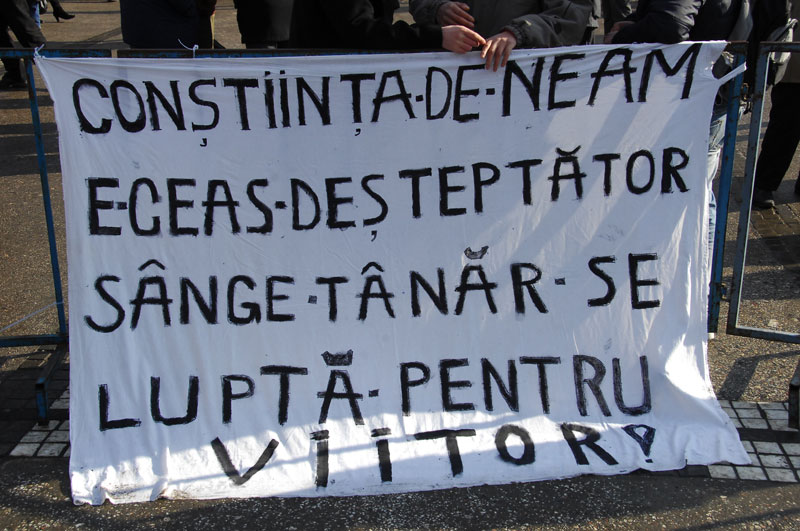 CONȘTIINȚA·DE·NEAM
E·CEAS·DEȘTEPTĂTOR
SÂNGE·TÂNĂR·SE
LUPTĂ·PENTRU
VIITOR!